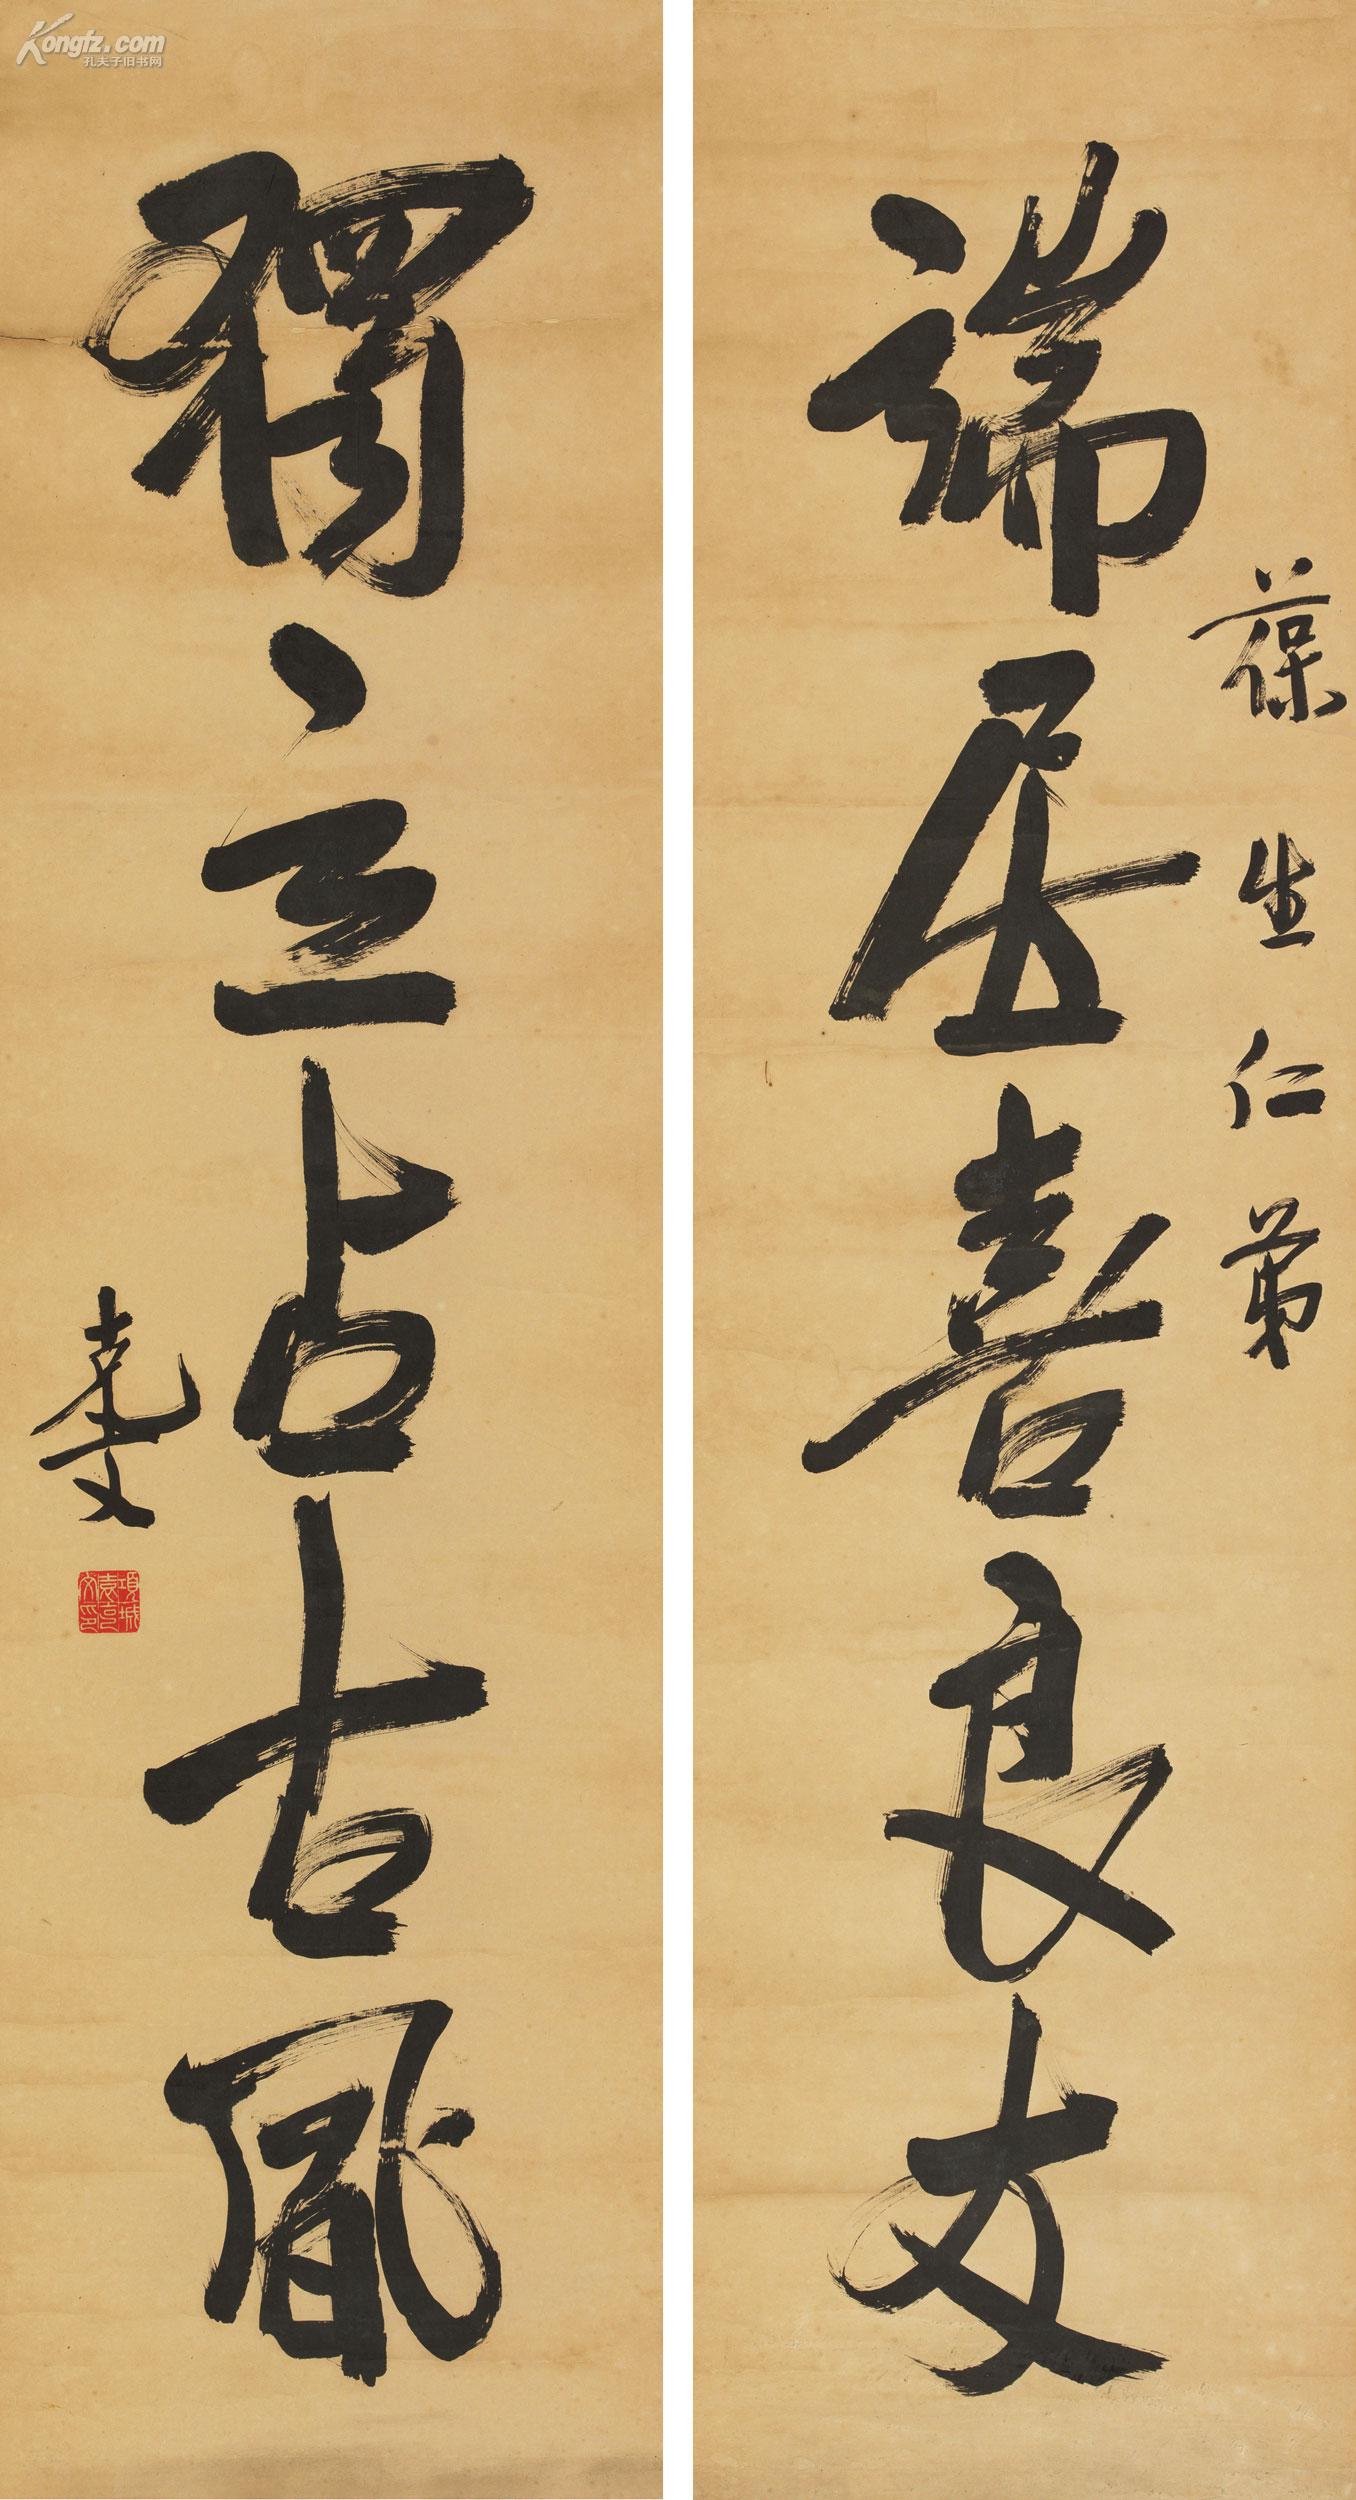 Kongfz.com
孔夫子旧书网
端居喜良友
葆生仁弟
獨立占古風
克文
項城袁克文印